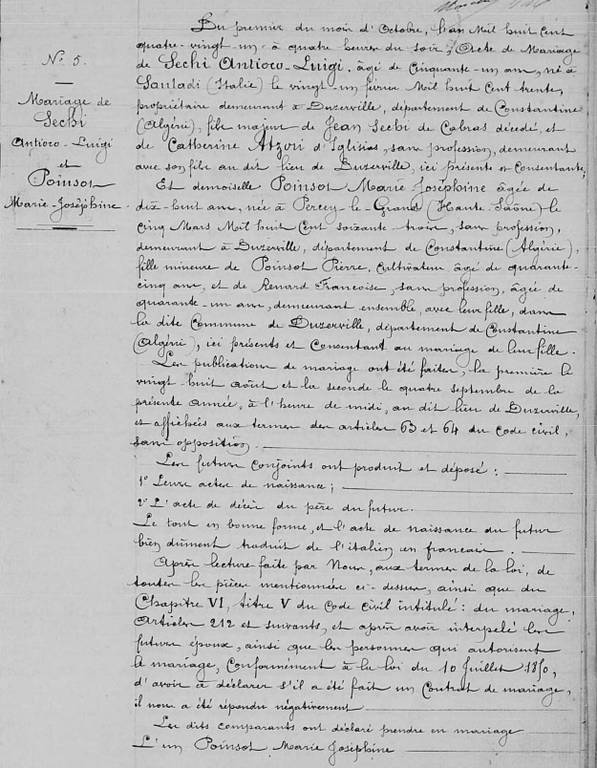 Nº 5.
Mariage de
Sechi
Antioco-Luigi
et
Poinsot
Marie-Joséphine
Du premier du mois d'Octobre, l'an Mil huit Cent
quatre-vingt-un à quatre heures du soir, Acte de Mariage
de Sechi Antioco-Luigi, âgé de Cinquante-un ans, né à
(Italie) le vingt-un février Mil huit Cent trente,
propriétaire demeurant à Duzerville, département de Constantine
(Algérie), fils majeur de Jean Sechi de Cabras décédé, et
de Catherine Atzori d'Iglesias, sans profession, demeurant
avec son fils au dit lieu de Duzerville, ici présente et Consentante;
Et demoiselle Poinsot Marie Joséphine âgée de
dix-huit ans, née à Percey-le-Grand (Haute-Saône) le
Cinq Mars Mil huit Cent soixante-trois, sans profession,
demeurant à Duzerville, département de Constantine (Algérie),
fille mineure de Poinsot Pierre, Cultivateur âgé de quarante-
cinq ans, et de Renard Francoise, sans profession, âgée de
quarante-un ans, demeurant ensemble, avec leur fille, dans
la dite Commune de Duzerville, département de Constantine
(Algérie), ici présents et Consentant au mariage de leur fille.
Les publications de mariage ont été faites, la première le
vingt-huit août et la seconde le quatre septembre de la
présente année, à l'heure de midi, au dit lieu de Duzerville,
et affichées aux termes des articles 63 et 64 du Code civil,
sans opposition.
Les futurs Conjoints ont produit et déposé :
1º Leurs actes de naissance ;
2º L'acte de décès du père du futur.
Le tout en bonne forme, et l'acte de naissance du futur
bien dûment traduit de l'italien en francais.
Après lecture faite par Nous, aux termes de la loi, de
toutes les pièces mentionnées ci-dessus, ainsi que du
Chapitre VI, titre V du Code civil intitulé : du mariage,
Articles 212 et suivants, et après avoir interpelé les
futurs époux, ainsi que les personnes qui autorisent
le mariage, Conformément à la loi du 10 Juillet 1850,
d'avoir à déclarer s'il a été fait un Contrat de mariage,
il nous a été répondu négativement
Les dits Comparants ont déclaré prendre en mariage
L'un Poinsot Marie Joséphine